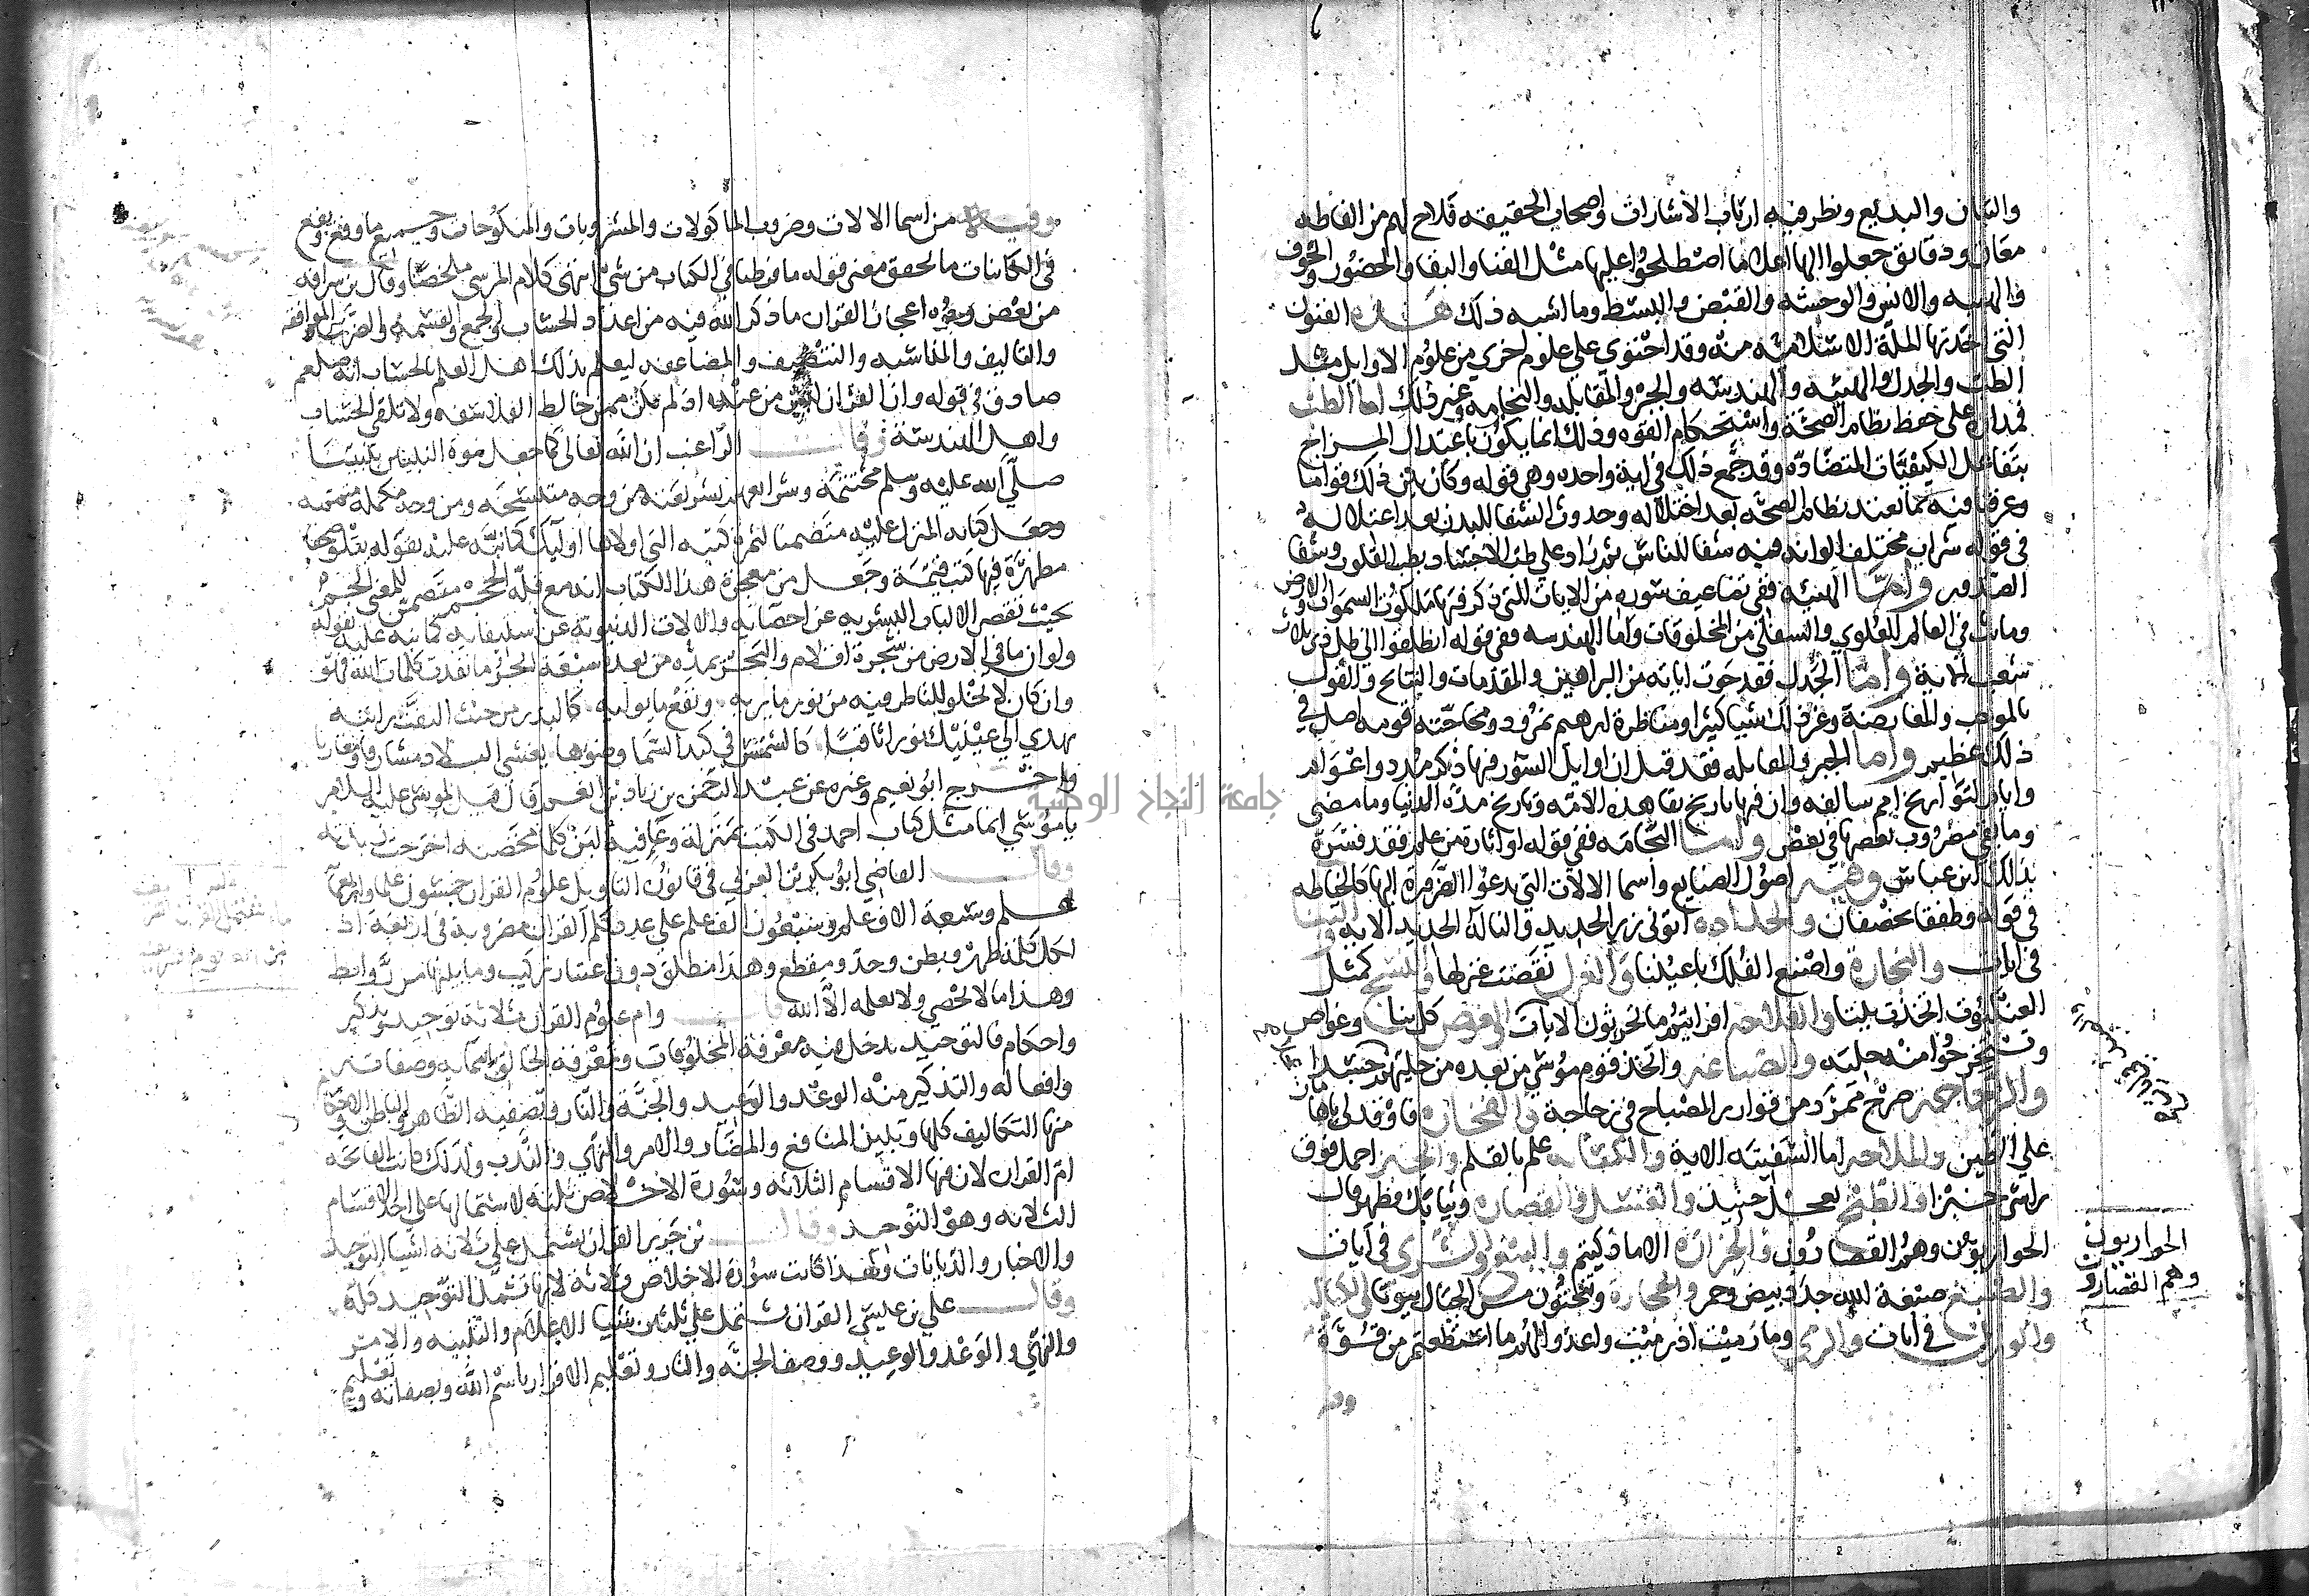 والبيان والبديع ونظر فيه ارباب الاشارات واصحاب الحقيقه فلاح لهم من الفاظه
معان ودقايق جعلوا لها اعلاما اصطلحوا عليها مثل الفنا والبقا والحضور والخوف
والهيبه والانس والوحشه والقبض والبسط وما اشبه ذلك هذه الفنون
التي اخذتها الملة الاسلاميه منه وقد احتوي علي علوم اخري من علوم الاوايل مثل
الطب والجدل والهيئه والهندسه والجبر والمقابله والنجامه وغير ذلك اما الطب
فمداره علي حفظ نظام الصحة واستحكام القوه وذلك انما يكون باعتدال المزاج
بتفاعل الكيفيات المتضاده وقد جمع ذلك في اية واحده وهي قوله وكان بين ذلك قواما
وعرفنا فيه بما يعيد نظام الصحه بعد اختلاله وحدوث الشفا للبدن بعد اعتلاله
في قوله شراب مختلف الوانه فيه شفا للناس ثم زاد علي طب الاجساد بطب القلوب وشفا
الصدور واما الهيئه ففي تضاعيف سوره من الايات التي ذكر فيها ملكوت السموات والارض
وما بث في العالم العلوي والسفلي من المخلوقات واما الهندسه ففي قوله انطلقوا الي ظل ذي ثلاث
شعب الاية واما الجدل فقد حوت اياته من البراهين والمقدمات والنتايج والقول
بالموجب والمعارضة وغير ذلك شيا كثيرا ومناظرة ابرهيم نمرود ومحاجته قومه اصل في
ذلك عظيم واما الجبر والمقابله فقد قيل ان اوايل السور فيها ذكر مدد واعوام
وايام لتواريخ امم سالفه وان فيها تاريخ بقا هذه الامة وتاريخ مدة الدنيا وما مضي
وما بقي مضروب بعضها في بعض واما النجامه ففي قوله او اثارة من علم فقد فسره
بذلك ابن عباس وفيه اصول الصنايع واسما الالات التي تدعوا الضرورة اليها كالخياطه
في قوله وطفقا يخصفان والحداده اتوني زبر الحديد والنا له الحديد الايه والبنا
في ايات والنجارة واصنع الفلك باعيننا والغزل نقضت غزلها والنسج كمثل
العنكبوت اتخذت بيتا والفلاحه افرايتم ما تحرثون الايات والغوص كل بنا وغواص
وتستخرجوا منه حلية والصياغه واتخذ قوم موسي من بعده من حليهم عجلا جسدا
والزجاجه صرح ممرد من قوارير المصباح في زجاجة والفخاره فاوقد لي ياهامان
علي الطين والملاحه اما السفينه الاية والكتابه علم بالقلم والخبز احمل فوق
راسي خبزا والطبخ بعجل حنيذ والغسل والقصاره وثيابك فطهر قال
الحواريون وهم القصارون والجزاره الا ما ذكيتم والبيع والشري في ايات
والصبغ صبغة الله جدد بيض وحمر والحجارة وتنحتون من الجبال بيوتا والكياله
والوزن في ايات والرمي وما رميت اذ رميت واعدوا لهم ما استطعتم من قوة
وفيه
الحواريون
وهم القصارون
وفيه من اسما الالات وضروب الماكولات والمشروبات والمنكوحات وجميع ما وقع ويقع
في الكاينات ما يحقق معني قوله ما فرطنا في الكتاب من شي انتهي كلام المرسي ملخصا وقال بن سراقه
من بعض وجوه اعجاز القران ما ذكر الله فيه من اعداد الحساب والجمع والقسمة والضرب والموافقه
والتاليف والمناسبه والتنصيف والمضاعفه ليعلم بذلك اهل العلم بالحساب انه صلعم
صادق في قوله وان القران ليس من عنده اذ لم يكن ممن خالط الفلاسفه ولا تلقي الحساب
واهل الهندسة وقال الراغب ان الله تعالي كما جعل نبوة النبيين بنبينا
صلي الله عليه وسلم مختتمة وشرايعهم بشريعته من وجه منتسخه ومن وجه مكملة متممه
وجعل كتابه المنزل عليه متضمنا لثمرة كتبه التي اولاها اوليك كما نبه عليه بقوله يتلو صحفا
مطهرة فيها كتب قيمة وجعل من معجزة هذا الكتاب انه مع قلة الحجم متضمن للمعني الجم
بحيث تقصر الالباب البشريه عن احصايه والالات الدنيوية عن استيفايه كما نبه عليه بقوله
ولو ان ما في الارض من شجرة اقلام والبحر يمده من بعده سبعة ابحر ما نفدت كلمات الله فهو
وان كان لا يخلو للناظر فيه من نور ما يريه ونفع ما يوليه كالبدر من حيث التفت رايته
يهدي الي عينيك نورا ثاقبا كالشمس في كبد السما وضوها يغشي البلاد مشارقا ومغاربا
واخرج ابو نعيم وغيره عن عبد الرحمن بن زياد بن انعم قال قيل لموسي عليه السلام
يا موسي انما مثل كتاب احمد في الكتب بمنزلة وعا فيه لبن كلما مخضته اخرجت زبدته
وقال القاضي ابو بكر بن العربي في قانون التاويل علوم القران خمسون علما واربعمايه
علم وسبعة الاف علم وسبعون الف علم علي عدد كلم القران مضروبة في اربعة اذ
لكل كلمة ظهر وبطن وحد ومقطع وهذا مطلق دون اعتبار تركيب وما بينها من روابط
وهذا ما لا يحصي ولا يعلمه الا الله قال وام علوم القران ثلاثة توحيد وتذكير
واحكام فالتوحيد يدخل فيه معرفة المخلوقات ومعرفة الخالق باسمايه وصفاته
وافعاله والتذكير منه الوعد والوعيد والجنة والنار وتصفيه الظاهر والباطن والاحكام
منها التكاليف كلها وتبيين المنافع والمضار والامر والنهي والندب ولذلك كانت الفاتحه
ام القران لان فيها الاقسام الثلاثه وسورة الاخلاص ثلثه لاشتمالها علي احد الاقسام
الثلاثه وهو التوحيد وقال بن جرير القران يشتمل علي ثلاثه اشيا التوحيد
والاخبار والديانات ولهذا كانت سورة الاخلاص ثلثه لانها تشمل التوحيد كله
وقال علي بن عيسي القران يشتمل علي ثلثين شيا الاعلام والتنبيه والامر
والنهي والوعد والوعيد ووصف الجنه والنار وتعليم الاقرار باسم الله وبصفاته وتعليم
جامعة النجاح الوطنية